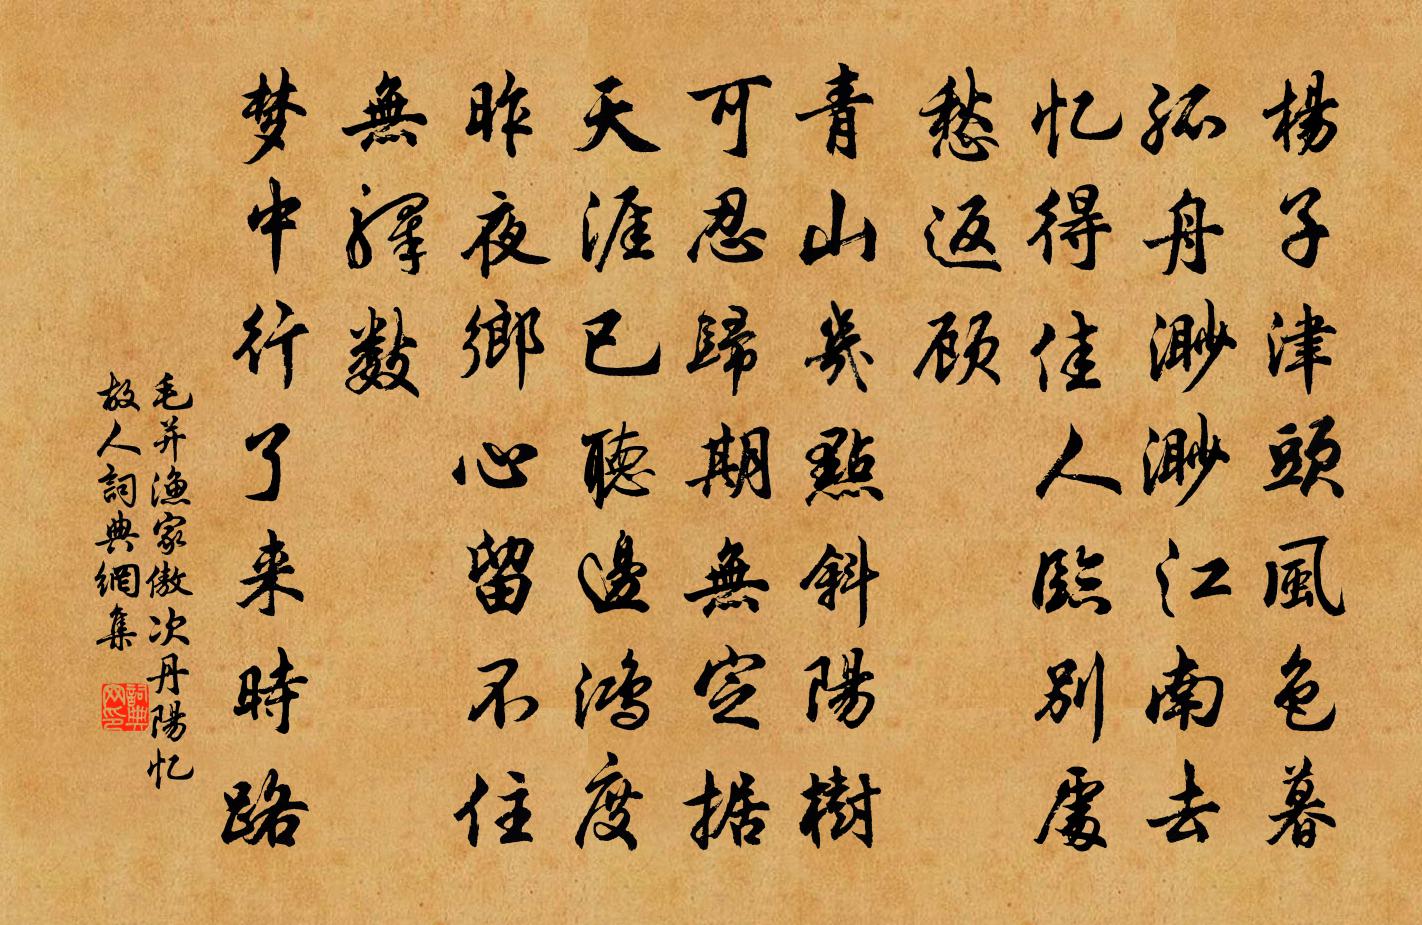 楊子津頭風色暮
孤舟渺渺江南去
忆得佳人臨別處
愁返顾
青山幾點斜陽樹
可忍歸期無定据
天涯已聽邊鴻度
昨夜鄉心留不住
無驛数
梦中行了来時路
毛并渔家傲次丹陽忆
故人詞典網集
詞典
网印